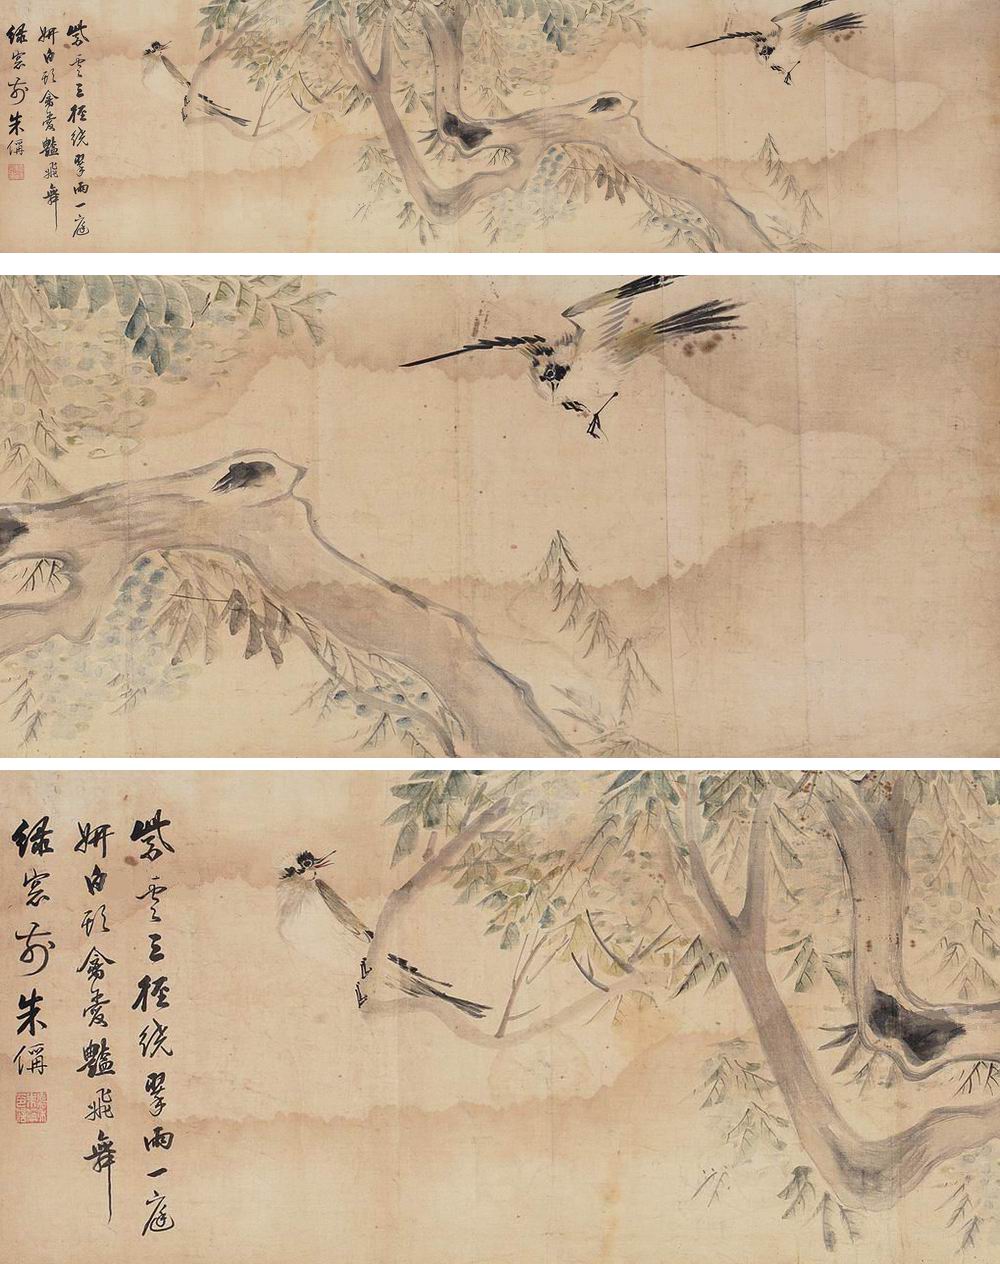 紫雲三徑繞翠雨一庭
妍白頭禽愛豔飛舞
綠窗前朱偁
紫雲三徑繞翠雨一庭
妍白頭禽愛豔飛舞
綠窗前朱偁